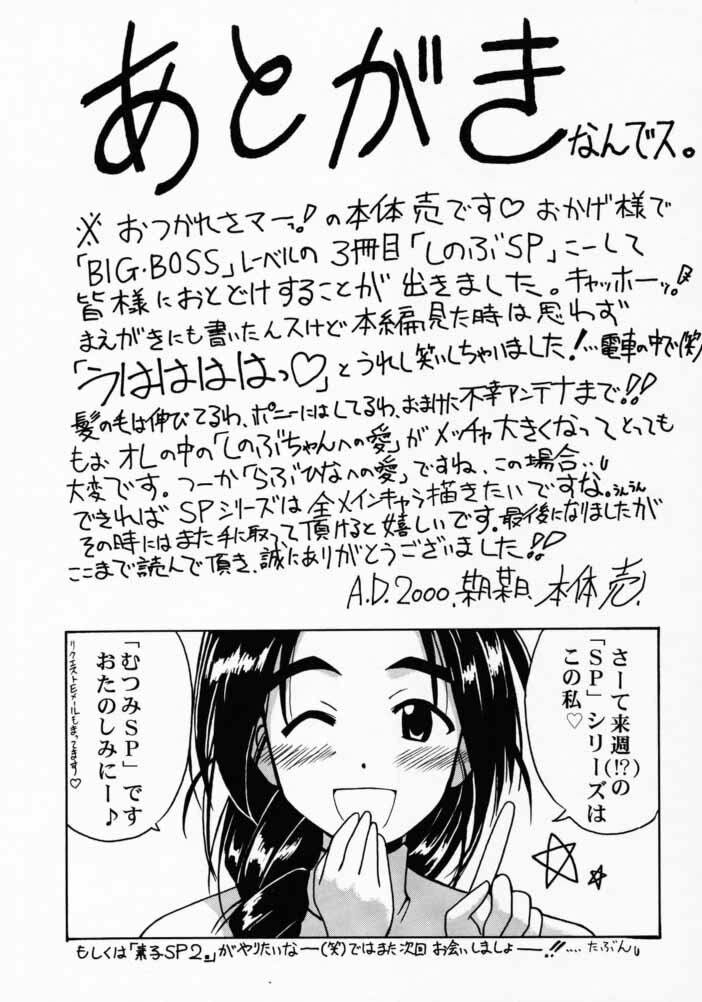 あとがき
なんでス。
※おつかれさマーっ!の本体売です♡おかげ様で
「BIG・BOSS」レーベルの3冊目「しのぶSP」こーして
皆様におとどけすることが出きました。キャッホーッ。
まえがきにも書いたんスけど本編見た時は思わず
「うはははは​っ♡」とうれし笑いしちゃいました!…電車の中で(笑)
髪の毛は伸びてるわ、ポニーにはしてるわ、おまけに不幸アンテナまで!!
もぉオレの中の「しのぶちゃんへの愛」がメッチャ大きくなってとっても
大変です。つーか「らぶひなへの愛」ですね、この場合…。
できればSPシリーズは全メインキャラ描きたいですな。うんうん
その時にはまた手に取って頂けると嬉しいです。最後になりましたが
ここまで読んで頂き、誠にありがとうございました!!
A.D.2000.某月某日、本体売.
さーて来週(!?)の
「SP」シリーズは
この私♡
「むつみSP」です
おたのしみにー♪
リクエストEメールもまってます♡
もしくは「素子SP2。」がやりたいなー(笑)ではまた次回お会いしましょー!!….たぶん